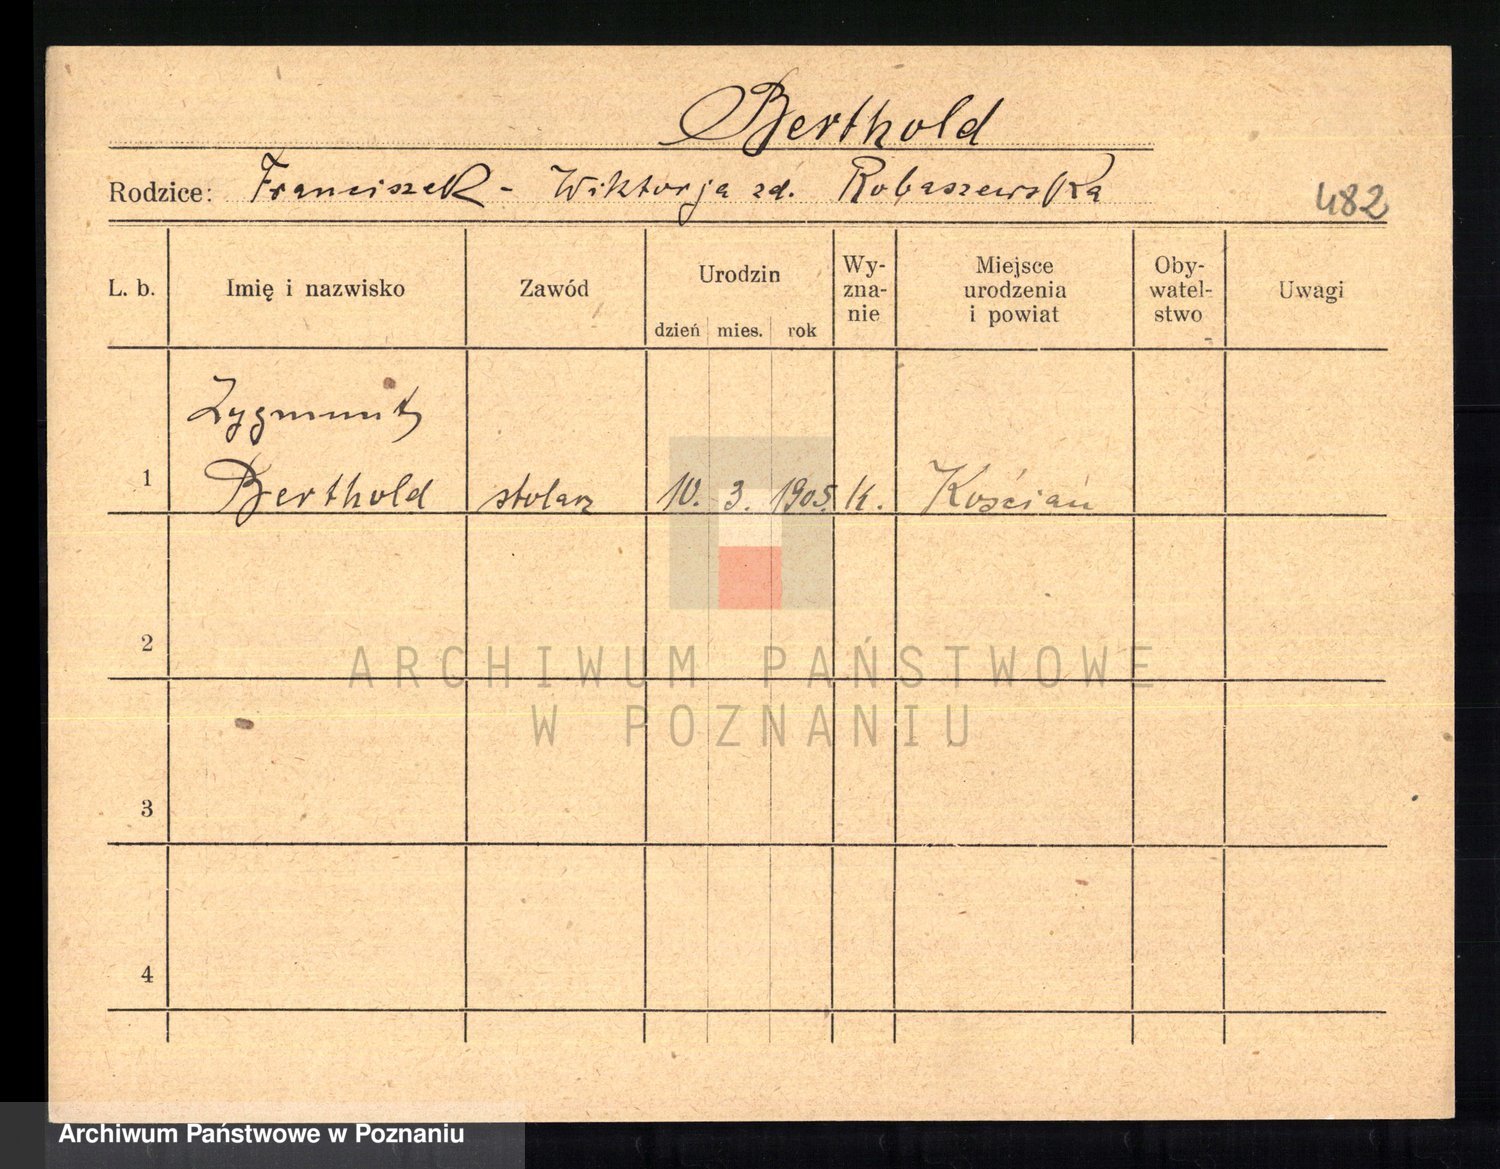 Berthold
Rodzice: Franciszek - Wiktorja zd. Robaszewska
482
L. b. Imię i nazwisko Zawód Urodzin dzień mies. rok Wy-zna-nie Miejsce urodzenia i powiat Oby-watel-stwo Uwagi
Zygmunt
1 Berthold stolarz 10. 3. 1905. k. Kościan
2
ARCHIWUM PAŃSTWOWE
W POZNANIU
3
4
Archiwum Państwowe w Poznaniu